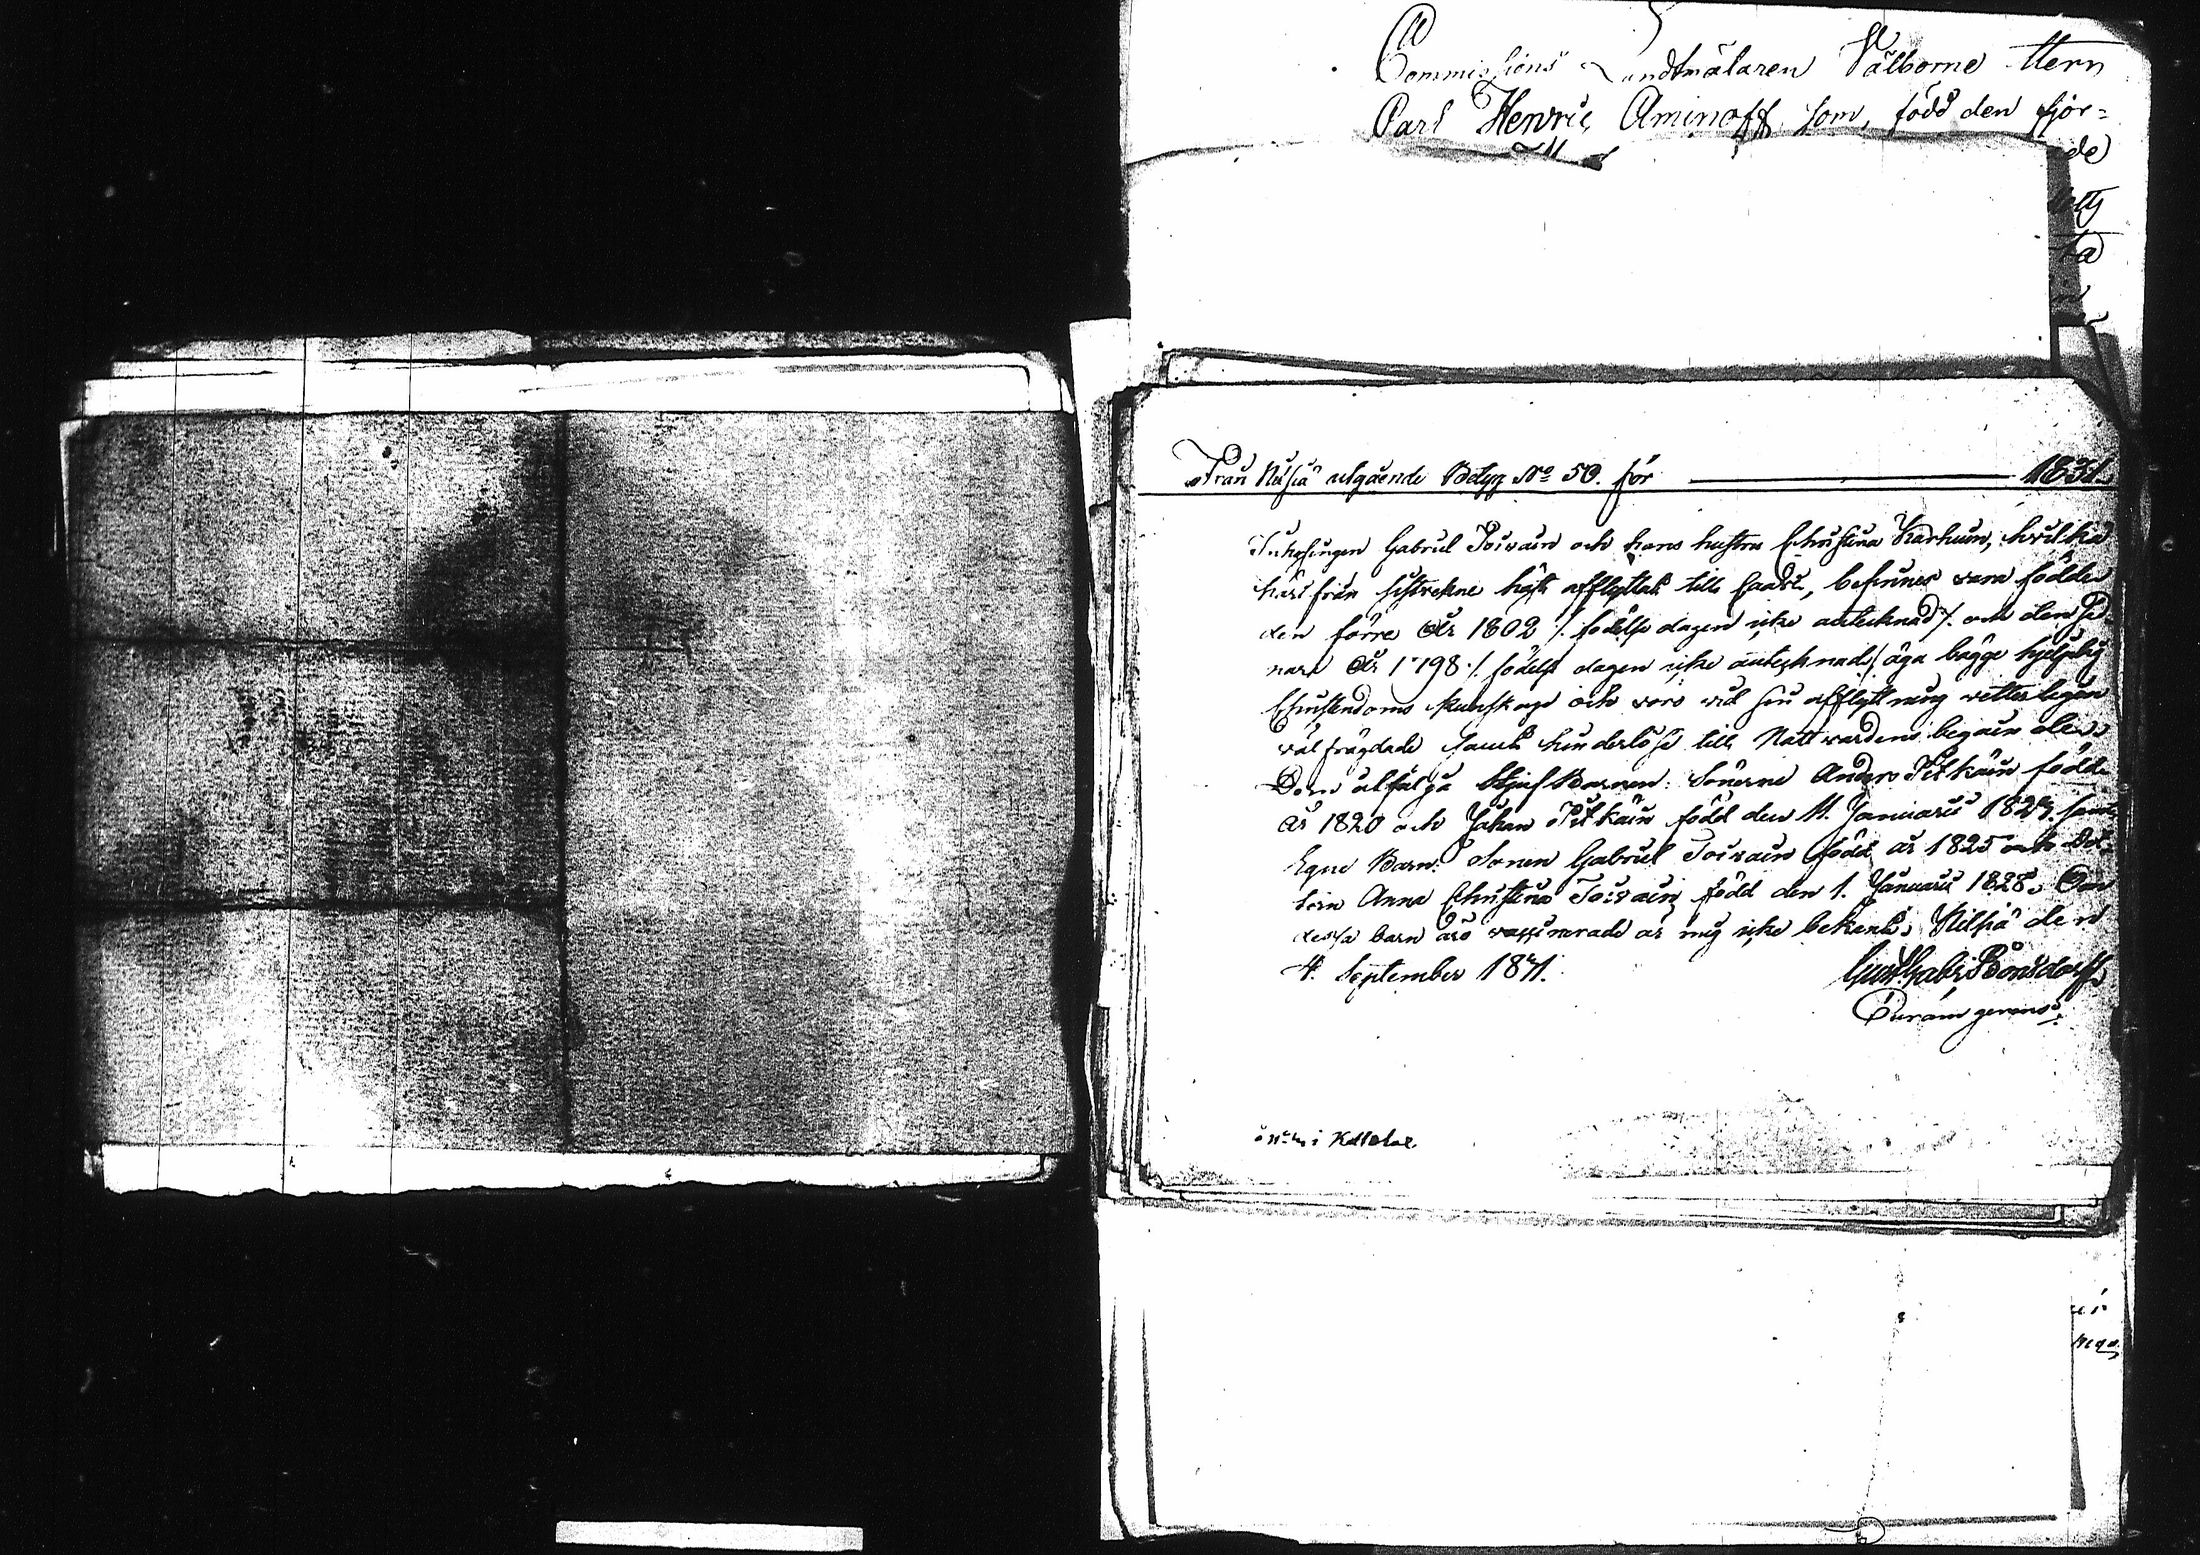 Commissions Landtmätaren Välborne Herr
Carl Henric Aminoff, som, född den fjor-
de
ta
Från Nilsiä utgående Betyg No 50. för 1831.
Inhysingen Gabriel Toivain och hans hustru Christina Karhuin, hvilka
härifrån sistvekne höst afflyttat till Gaddi, befinnes vara födde
den förre År 1802 /. födelse dagen icke antecknad ./ och den sed
nare År 1798 ./. födelse dagen icke antecknad / äga bägge hjelplig
Christendoms kunskap och voro vid sin afflyttning vitterligen
välfrägdade samt hinderlöse till Nattvardens begående.
Dem åtfölja StjufBarnen: Sönerne Anders Pitkäin född
År 1820 och Johan Pitkäin född den 11. Januarii 1824. samt
Egne Barn: Sonen Gabriel Toivain född år 1825 och Dot-
tern Anna Christina Toivain född den 1. Januarii 1828. Om
dessa barn äro vaccinerade är mig icke bekant. Nilsiä den
4. September 1831.
Gust. Gabr. Bonsdorff
Curam gerens.
i